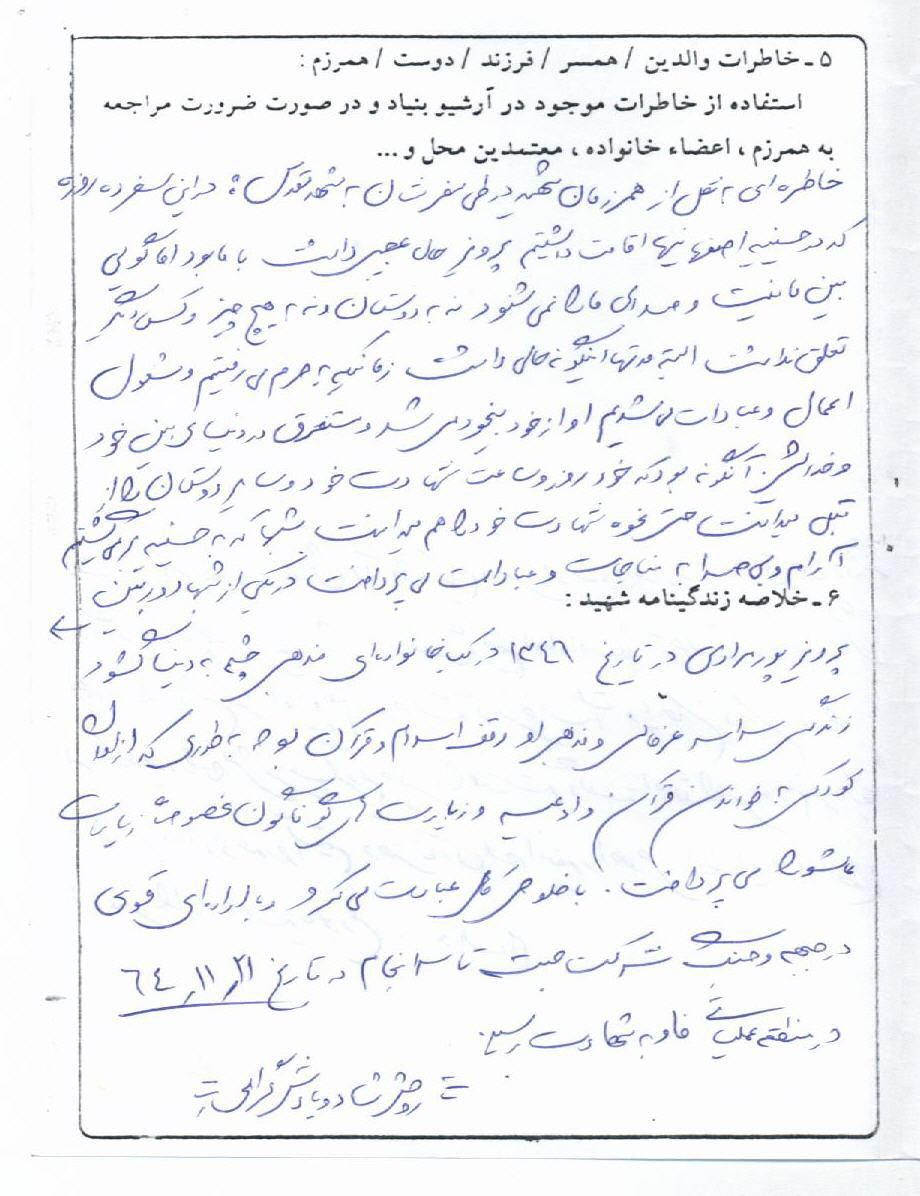 ۵ ـ خاطرات والدین / همسر / فرزند / دوست / همرزم :
استفاده از خاطرات موجود در آرشیو بنیاد و در صورت ضرورت مراجعه
به همرزم ، اعضاء خانواده ، معتمدین محل و ...
خاطره ای به نقل از همرزمان شهید در طی سفرشان به مشهد مقدس : در این سفر ده روزه
که در حسینیه اصفهانیها اقامت داشتیم پرویز حال عجیبی داشت با ما بود اما گویی
بین ما نیست و صدای ما را نمی شنود نه به دوستان و نه به هیچ چیز و کس دیگر
تعلق نداشت البته مدتها اینگونه حالی داشت زمانیکه به حرم می رفتیم و مشغول
اعمال و عبادات می شدیم او از خود بیخود می شد و مستغرق در دنیای بین خود
و خدایش. آنگونه بود که خود روز و ساعت شهادت خود و سایر دوستان را از
قبل میدانست حتی نحوه شهادت خود را هم میدانست شبها که به حسینیه بر می گشتیم
آرام و بی صدا به مناجات و عبادات می پرداخت در یکی از شبها دوربین
۶ ـ خلاصه زندگینامه شهید :
پرویز پور مرادی در تاریخ ۱۳۴۶ در یک خانواده ای مذهبی چشم به دنیا گشود
زندگی سراسر عرفانی و مذهبی او وقف اسلام و قرآن بود به طوری که از اوان
کودکی به خواندن قرآن و ادعیه و زیارت های گوناگون مخصوصا زیارت
عاشورا می پرداخت . با خلوص کامل عبادت می کرد و با اراده ای قوی
در جبهه و جنگ شرکت جست تا سرانجام در تاریخ ۶۴,۱۱,۲۱
در منطقه عملیاتی فاو به شهادت رسید.
روحش شاد و یادش گرامی